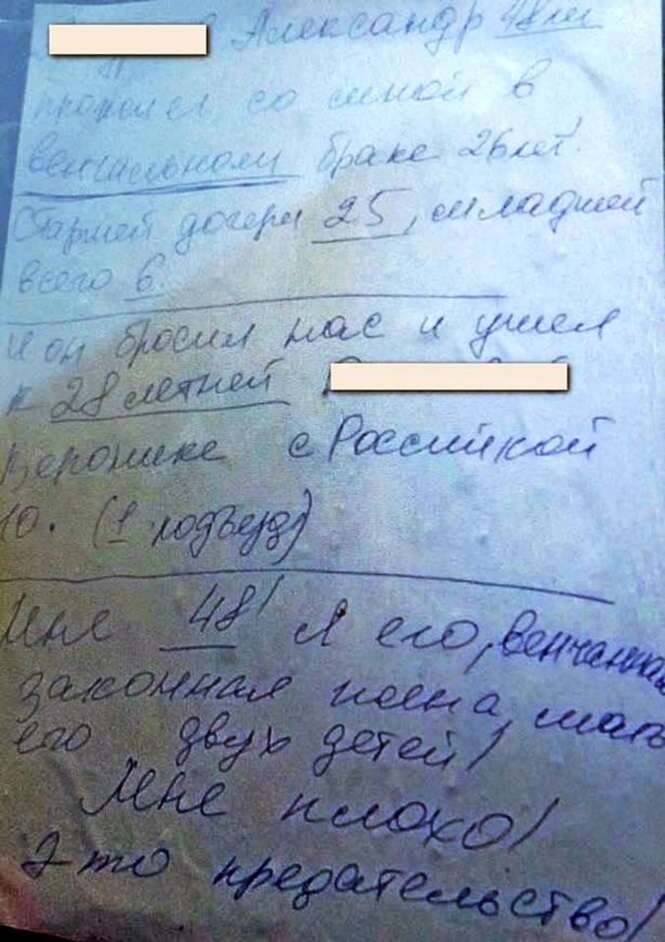 Александр 48 лет
прожил со мной в
венчальном браке 26 лет.
Старшей дочери 25, младшей
всего 6.
и он бросил нас и ушел
к 28 летней
Веронике с Российкой
10. (1 подъезд)
Мне 48! Я его, венчанная
законная жена, мать
его двух детей!
Мне плохо!
Это предательство!